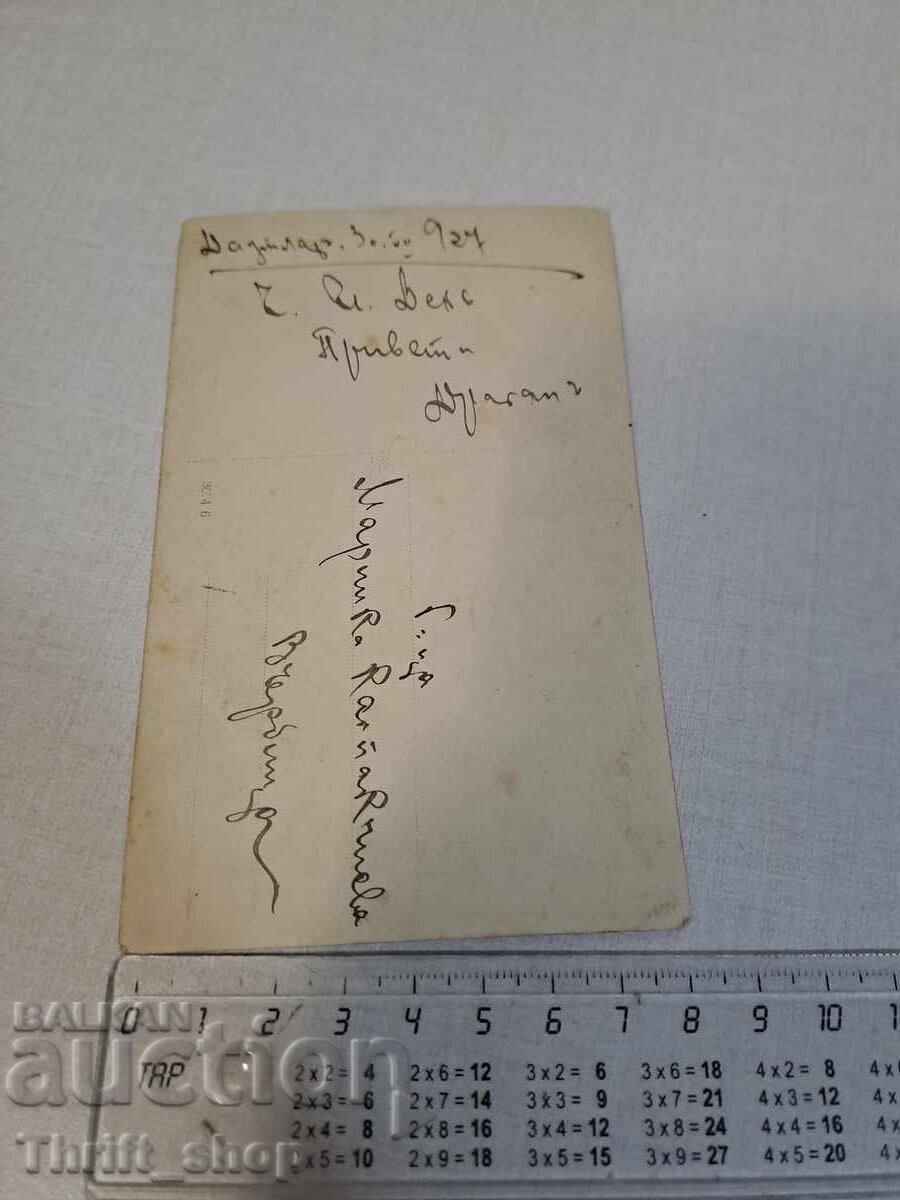 927
Ч. Им. День
Привети
Драганъ
3046
Г-ца
Марийка
Върбица
BALKAN
auction
Thrift_shop
0 1 2 3 4 5 6 7 8 9 10 1
2 x 2 = 4 2 x 6 = 12 3 x 2 = 6 3 x 6 = 18 4 x 2 = 8 4 x
2 x 3 = 6 2 x 7 = 14 3 x 3 = 9 3 x 7 = 21 4 x 3 = 12 4 x
2 x 4 = 8 2 x 8 = 16 3 x 4 = 12 3 x 8 = 24 4 x 4 = 16 4 x
2 x 5 = 10 2 x 9 = 18 3 x 5 = 15 3 x 9 = 27 4 x 5 = 20 4 x